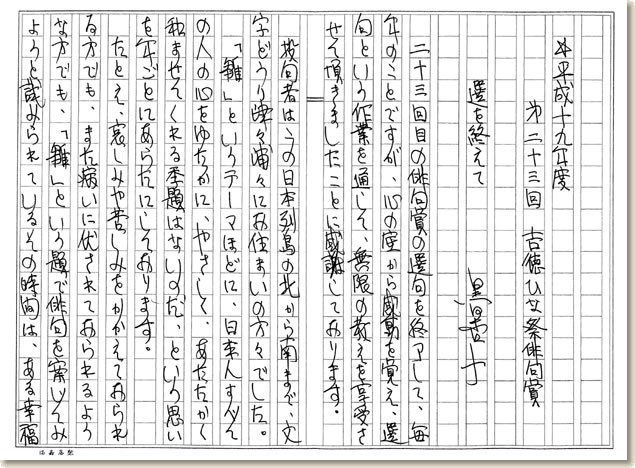 平成十九年度
第二十三回　吉徳ひな祭俳句賞
選を終えて
黒田杏子
二十三回目の俳句賞の選句を終了して、毎
年のことですが、心の底から感動を覚え、選
句という作業を通して、無限の教えを享受さ
せて頂きましたことに感謝しております。
投句者はこの日本列島の北から南まで、文
字どうり津々浦々にお住まいの方々でした。
「雛」というテーマほどに、日本人すべて
の人の心をゆたかに、やさしく、あたたかく
和ませてくれる季題はないのだ、という思い
を年ごとにあらたにしております。
たとえ、哀しみや苦しみをかかえておられ
る方でも、また病いに伏されておられるよう
な方でも、「雛」という題で俳句を案じてみ
ようと試みられているその時間は、ある幸福